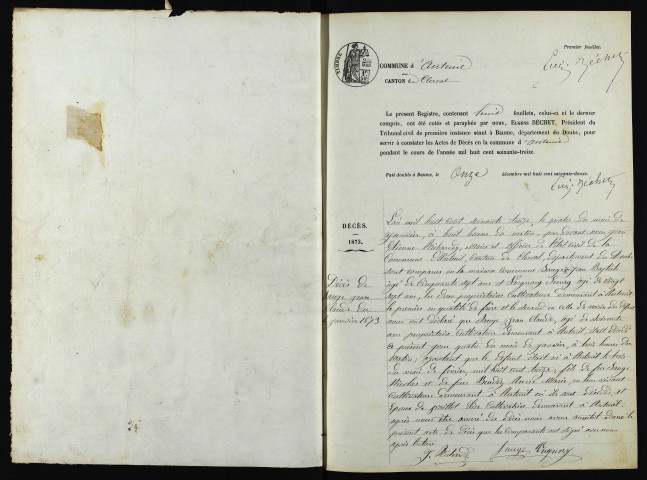 Premier feuillet.
COMMUNE d'Auteuil
CANTON de Clerval
Eug. Béchet
Le présent Registre, contenant huit feuillets, celui-ci et le dernier
compris, ont été cotés et paraphés par nous, EUGÈNE BÉCHET, Président du
Tribunal civil de première instance séant à Baume, département du Doubs, pour
servir à constater les Actes de Décès en la commune d
pendant le cours de l'année mil huit cent soixante-treize.
Fait double à Baume, le Onze décembre mil huit cent soixante-douze.
Eug. Béchet
DÉCÈS.
1873.
Décès de
Sauge Jean
Claude du
4 janvier 1873
L'an mil huit cent soixante treize, le quatre du mois de
janvier, à huit heures du matin, par devant nous Jean
Etienne Maire et officier de l'état civil de la
Commune d'Auteuil, Canton de Clerval, département du Doubs
sont comparus en la maison commune Sauge Jean Baptiste
âgé de Cinquante sept ans et Vugnory âgé de vingt
sept ans, les deux propriétaires Cultivateurs demeurant à Auteuil
le premier en qualité de frère et le second en celle de du défunt
nous ont déclaré que Sauge Jean Claude, âgé de soixante
ans propriétaire Cultivateur demeurant à Auteuil, était décédé
ce présent jour quatre du mois de janvier, à trois heures du
Matin; ajoutant que le défunt était né à Auteuil le trois
du mois de février, mil huit cent treize; fils de feu Sauge
Nicolas et de feue Anne Marie, en leur vivant
Cultivateurs demeurant à Auteuil où ils sont décédés, et
Epoux de Cultivatrice demeurant à Auteuil.
après nous être assuré du décès nous avons dressé le
présent acte de Décès que les comparants ont signé avec nous
après lecture
Sauge Vugnory